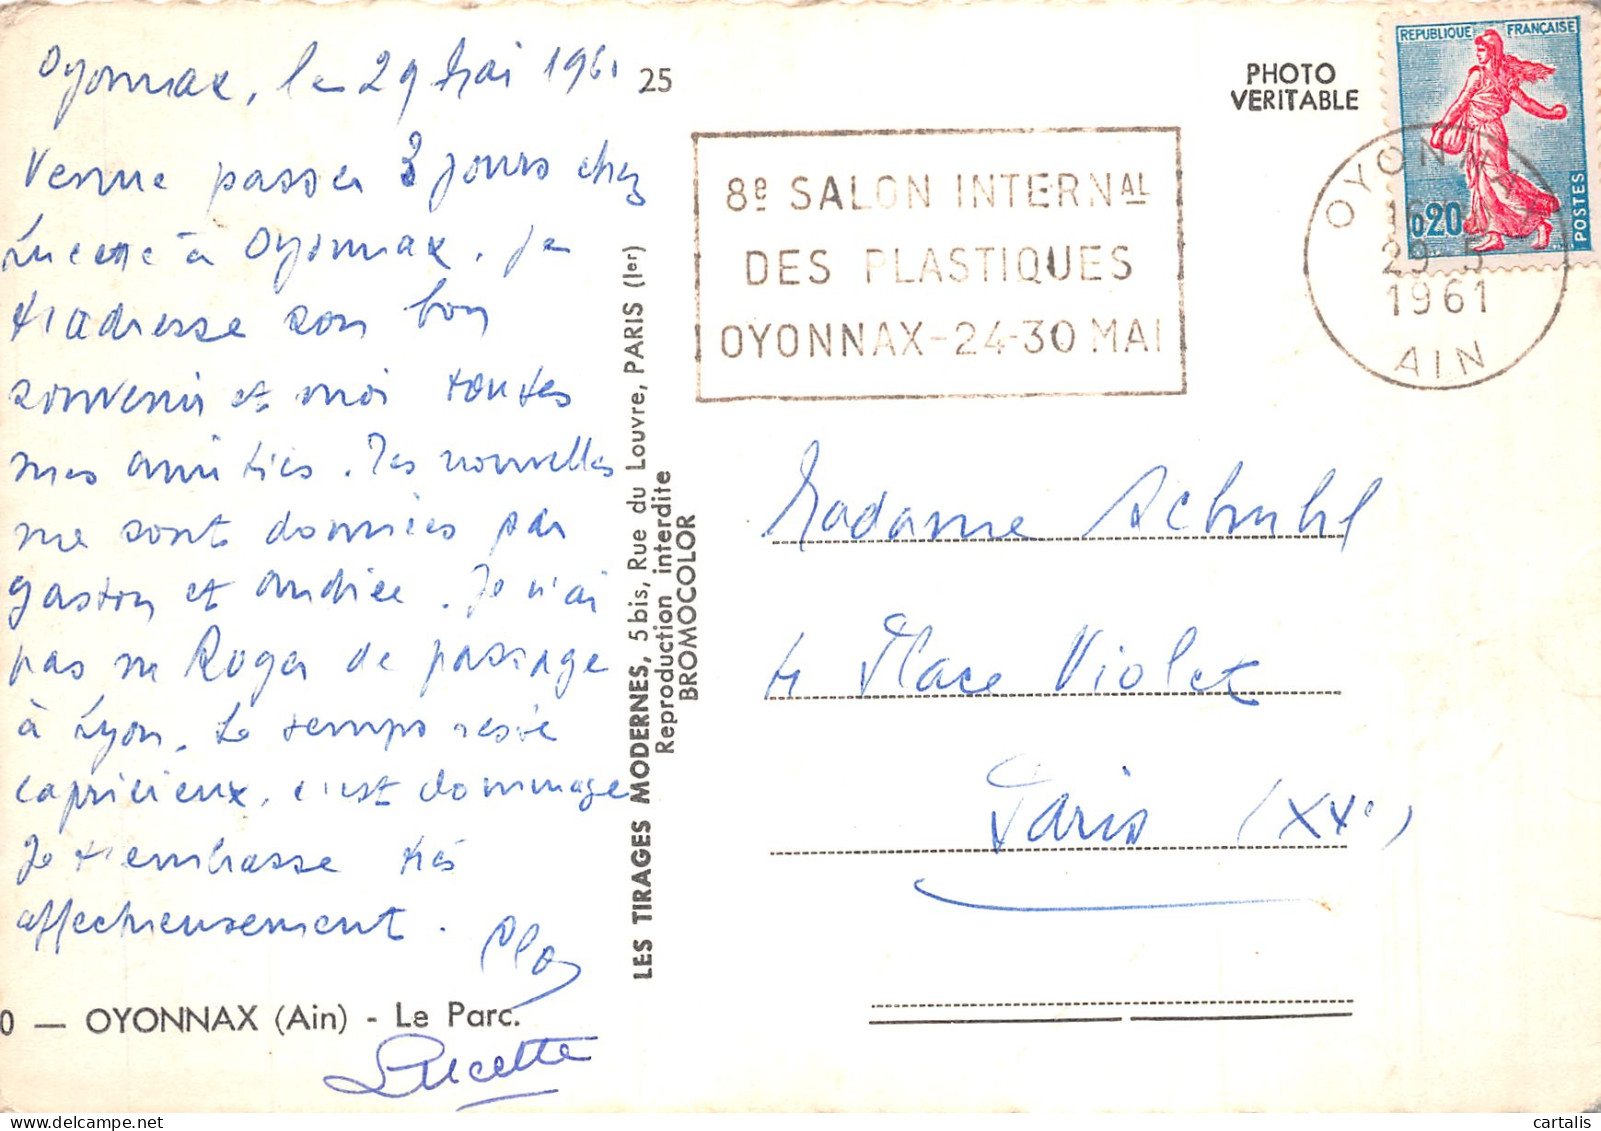 Oyonnax, le 29 Mai 1961
Venue passer 3 jours chez
Lucette à Oyonnax. Je
t'adresse son bon
souvenir et moi toutes
mes amitiés. Tes nouvelles
me sont données par
gaston et andrée. Je n'ai
pas vu Roger de passage
à Lyon. Le temps reste
capricieux, c'est dommage
Je t'embrasse très
affectueusement.
Lucette
0 — OYONNAX (Ain) - Le Parc.
25
LES TIRAGES MODERNES, 5 bis, Rue du Louvre, PARIS (Ier)
Reproduction interdite
BROMOCOLOR
PHOTO
VERITABLE
8e SALON INTERNAL
DES PLASTIQUES
OYONNAX-24-30 MAI
REPUBLIQUE FRANÇAISE
0,20
POSTES
OYONNAX
29-5
1961
AIN
Madame Schuhl
4 Place Violet
Paris (XVe)
cartalis.com